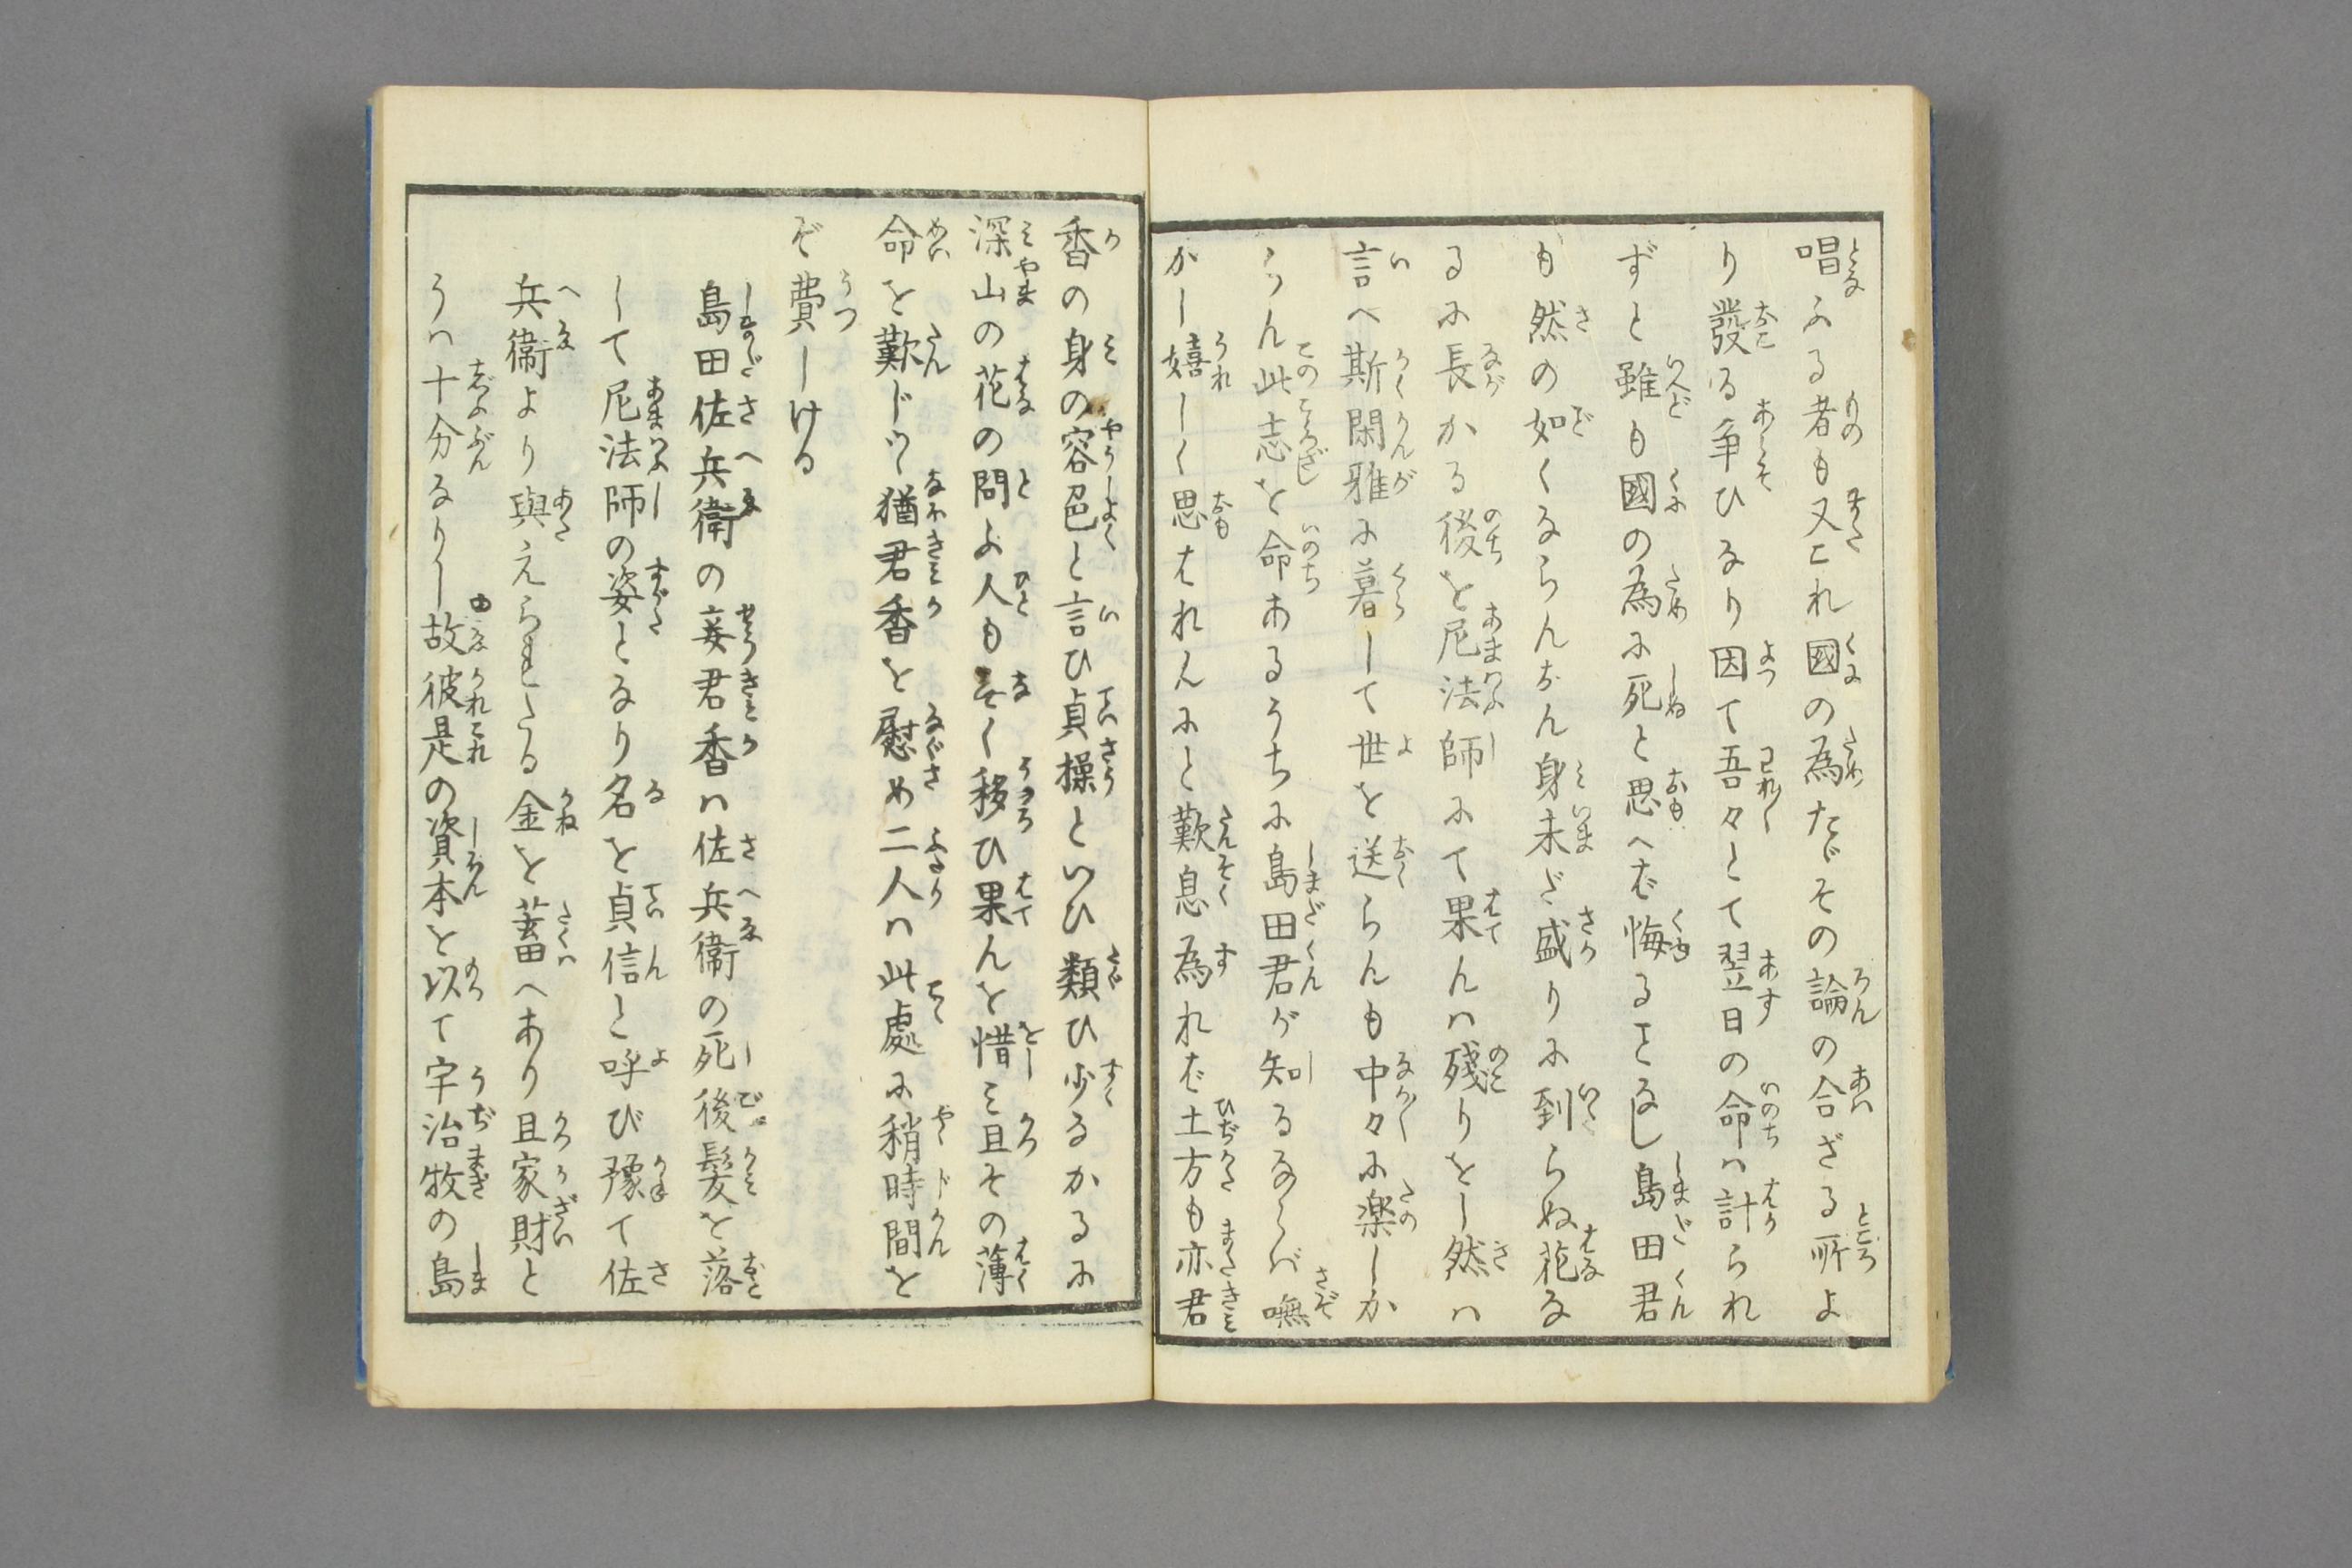 唱ふる者も又これ國の為たゞその論の合ざる所よ
り發る争ひなり因て吾々とて翌日の命ハ計られ
ずと雖も國の為に死と思へば悔ることなし島田君
も然の如くならんなれど身未だ盛りに到らぬ花な
るに長かる後を尼法師にて果んハ殘りをし然ハ
言へ斯閑雅に暮して世を送らんも中々に楽しか
らん此志を命あるうちに島田君が知るならバ嘸
かし嬉しく思はれんにと歎息為れば土方も亦君
香の身の容色と言ひ貞操といひ類ひ少なかるに
深山の花の問よ人もなく移ひ果んを惜ミ且その薄
命を歎じツヽ猶君香を慰め二人ハ此處に稍時間を
ぞ費しける
島田佐兵衛の妾君香ハ佐兵衛の死後髪を落
して尼法師の姿となり名を貞信と呼び豫て佐
兵衞より與えられたる金を蓄へあり且家財と
うハ十分なりし故彼是の資本を以て宇治牧の島